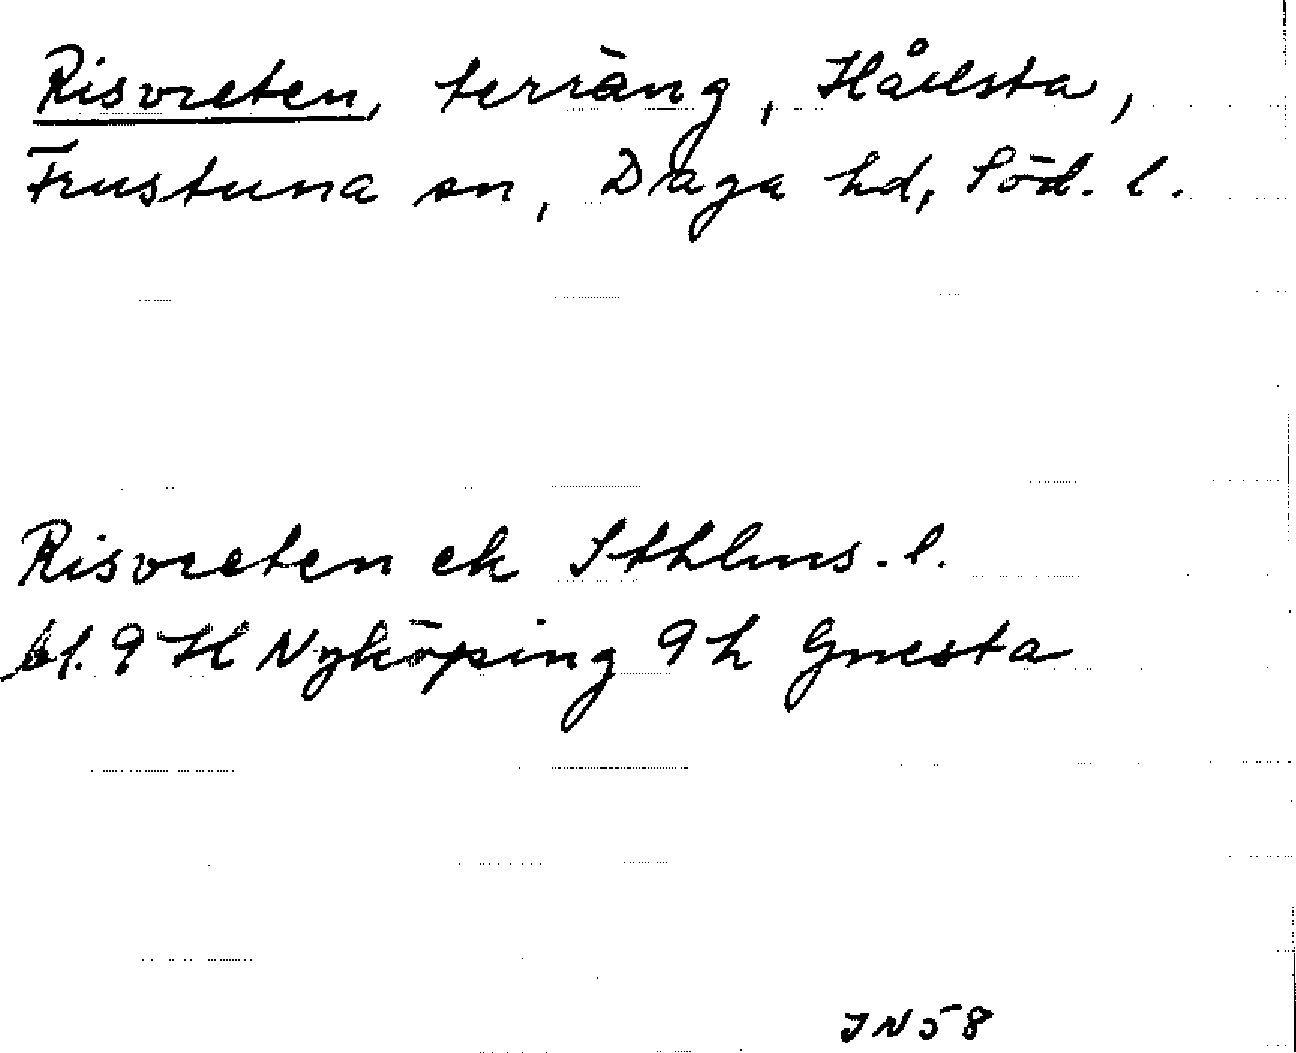 Risvreten, terräng, Hållsta,
Frustuna sn, Daga hd, Söd. l.
Risvreten ek Sthlms. l.
bl. 9 H Nyköping 9 h Gnesta
JN 58